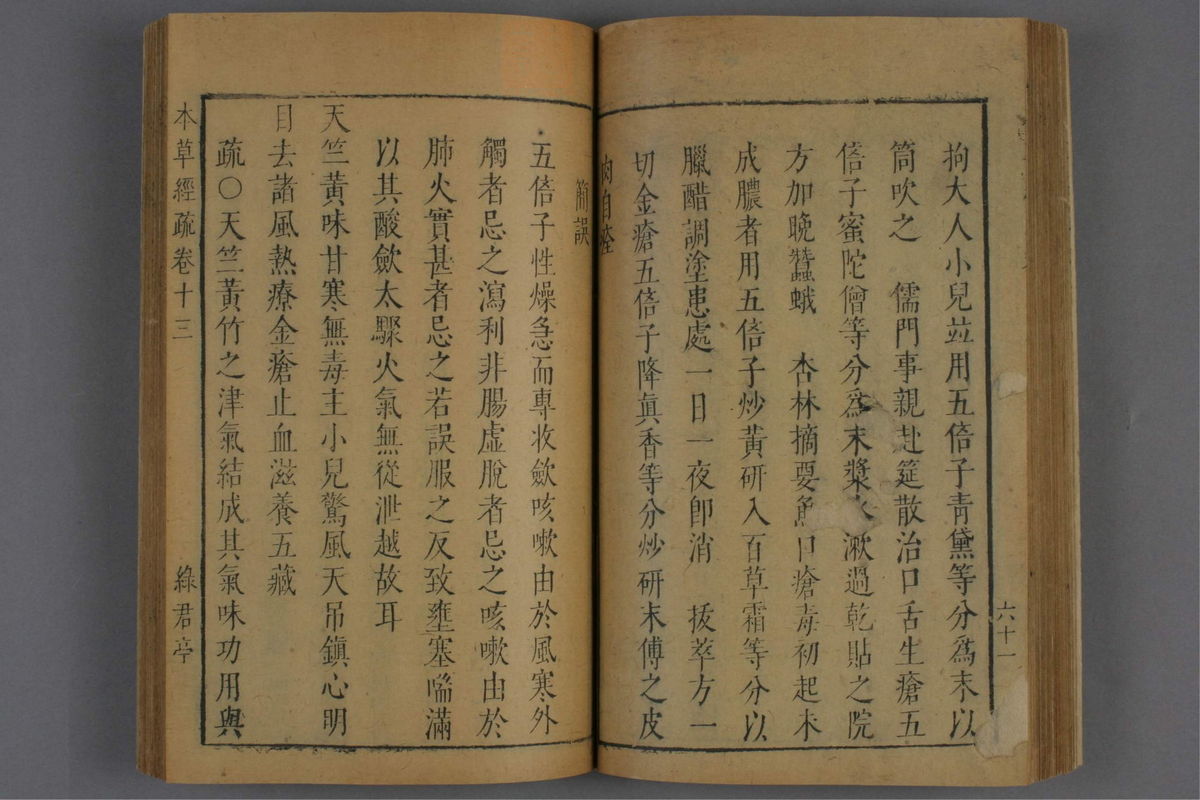 拘大人小兒並用五倍子青黛等分爲末以
筒吹之　儒門事親赴筵散治口舌生瘡五
倍子蜜陀僧等分爲末漿水漱過乾貼之院
方加晚蠶蛾　杏林摘要魚口瘡毒初起未
成膿者用五倍子炒黃研入百草霜等分以
臘醋調塗患處一日一夜卽消　拔萃方一
切金瘡五倍子降眞香等分炒研末傅之皮
肉自痊
六十一
簡誤
五倍子性燥急而專收斂咳嗽由於風寒外
觸者忌之瀉利非腸虛脫者忌之咳嗽由於
肺火實甚者忌之若誤服之反致壅塞喘滿
以其酸斂太驟火氣無從泄越故耳
天竺黃味甘寒無毒主小兒驚風天吊鎭心明
目去諸風熱療金瘡止血滋養五藏
疏○天竺黃竹之津氣結成其氣味功用與
本草經疏卷十三　綠君亭